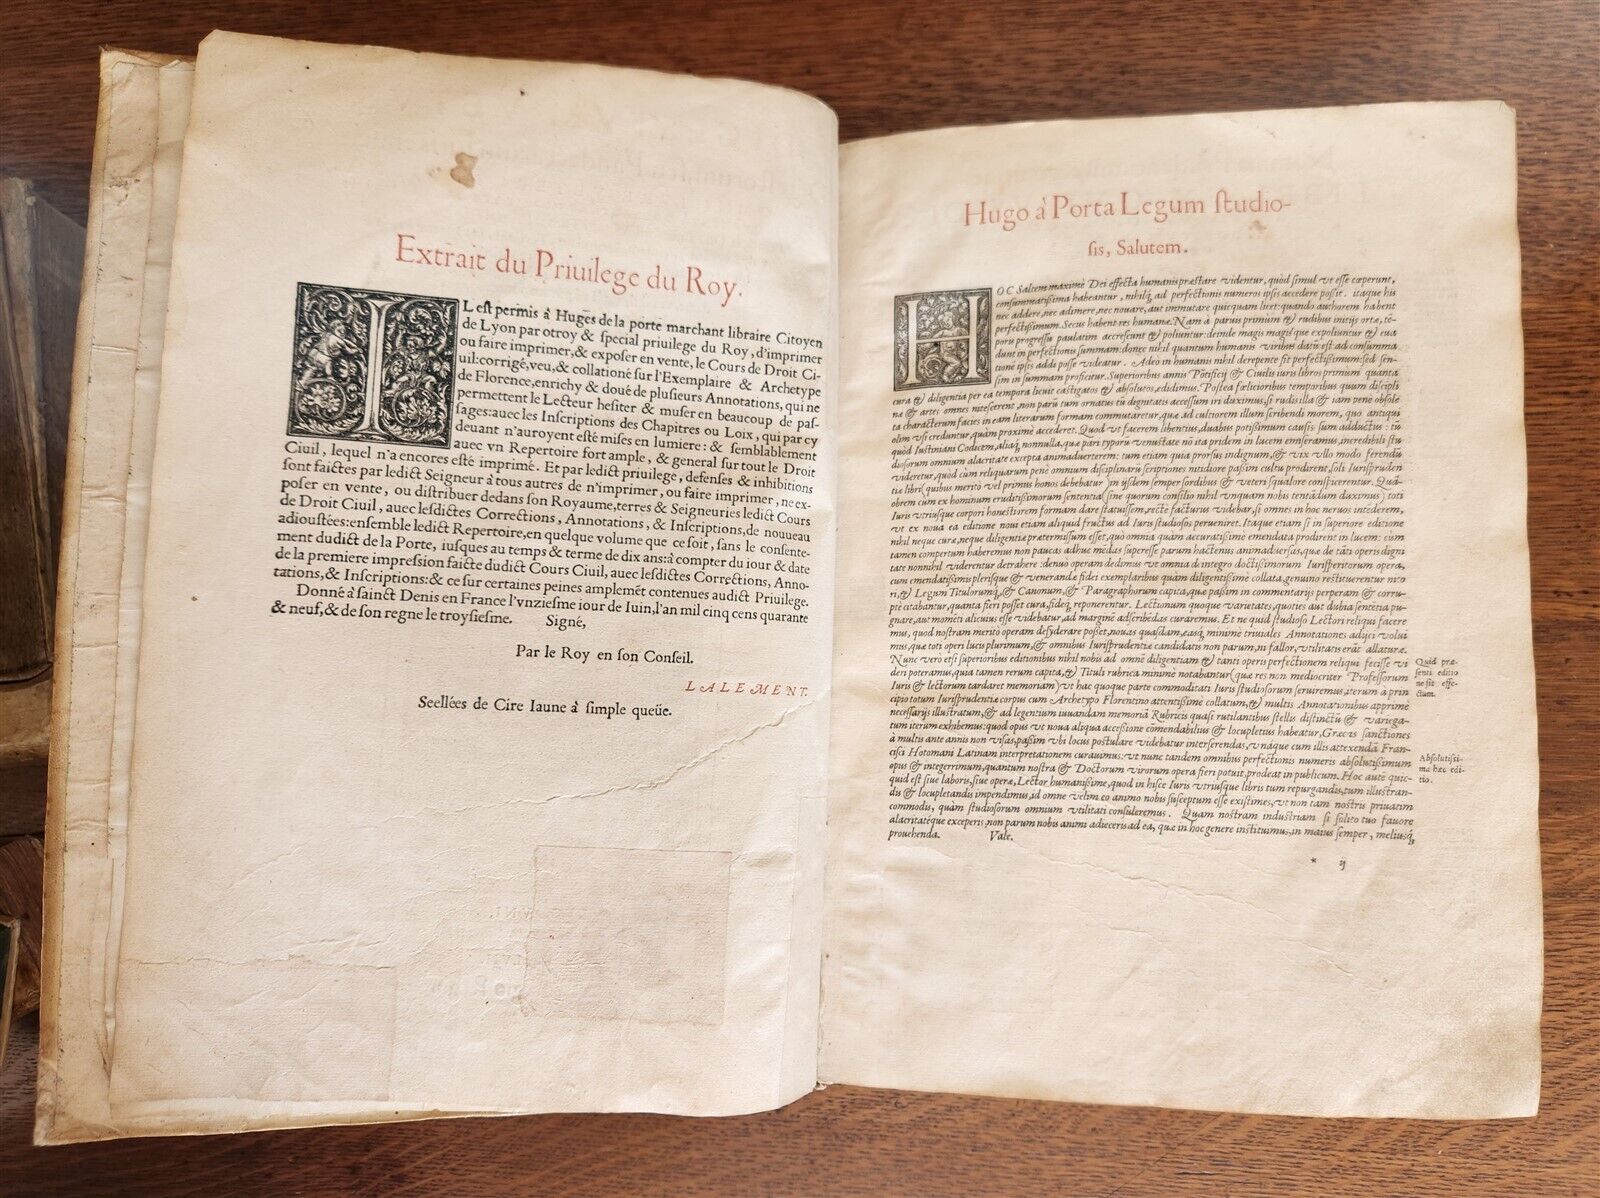 Extrait du Priuilege du Roy.
IL est permis à Huges de la porte marchant libraire Citoyen
de Lyon par otroy & special priuilege du Roy, d'imprimer
ou faire imprimer, & exposer en vente, le Cours de Droit Ci-
uil: corrigé, veu, & collationé sur l'Exemplaire & Archetype
de Florence, enrichy & doué de plusieurs Annotations, qui ne
permettent le Lecteur hesiter & muser en beaucoup de pas-
sages: auec les Inscriptions des Chapitres ou Loix, qui par cy
deuant n'auroyent esté mises en lumiere: & semblablement
auec vn Repertoire fort ample, & general sur tout le Droit
Ciuil, lequel n'a encores esté imprimé. Et par ledict priuilege, defenses & inhibitions
sont faictes par ledict Seigneur à tous autres de n'imprimer, ou faire imprimer, ne ex-
poser en vente, ou distribuer dedans son Royaume, terres & Seigneuries ledict Cours
de Droit Ciuil, auec lesdictes Corrections, Annotations, & Inscriptions, de nouueau
adioustées: ensemble ledict Repertoire, en quelque volume que ce soit, sans le consente-
ment dudict de la Porte, iusques au temps & terme de dix ans: à compter du iour & date
de la premiere impression faicte dudict Cours Ciuil, auec lesdictes Corrections, Anno-
tations, & Inscriptions: & ce sur certaines peines amplemẽt contenues audict Priuilege.
Donné à sainct Denis en France l'vnziesme iour de Iuin, l'an mil cinq cens quarante
& neuf, & de son regne le troysiesme. Signé,
Par le Roy en son Conseil.
LALEMENT.
Seellées de Cire Iaune à simple queüe.
Hugo à Porta Legum studio-
sis, Salutem.
HOC Saltem maximè Dei effecta humanis præstare videntur, quòd simul vt esse cœperunt,
consummatissima habeantur, nihilq́; ad perfectionis numeros ipsis accedere possit. itaque his
nec addere, nec adimere, nec nouare, aut immutare quicquam licet: quando authorem habent
perfectissimum. Secus habent res humanæ. Nam à paruis primùm & rudibus initijs ortæ, tẽ-
poris progressu paulatim accrescunt & poliuntur: deinde magis magisq́ue expoliuntur & eua
dunt in perfectionis summam: donec nihil quantum humanis viribus datũ est ad consumma
tionem ipsis addi posse videatur. Adeò in humanis nihil derepente fit perfectissimum: sed sen-
sim in summam proficitur. Superioribus annis Pōtificij & Ciuilis iuris libros primùm quanta
cura & diligentia per ea tempora licuit castigatos & absolutos, edidimus. Postea fœlicioribus temporibus quum discipli
næ & artes omnes nitescerent, non parũ tum ornatus tũ dignitatis accessum iri duximus, si rudis illa & iam penè obsole
ta characterum facies in eam literarum formam commutaretur, quæ ad cultiorem illum scribendi morem, quo antiqui
olim vsi creduntur, quàm proximè accederet. Quod vt facerem libentius, duabus potissimùm causis sum adductus: tũ
quòd Iustiniani Codicem, aliaq́; nonnulla, quæ pari typorũ venustate nō ita pridem in lucem emiseramus, incredibili stu
diosorum omnium alacritate excepta animaduerterem: tum etiam quia prorsus indignum, & vix vllo modo ferendũ
videretur, quòd cum reliquarum penè omnium disciplinarũ scriptiones nitidiore passim cultu prodirent, soli Iurispruden
tiæ libri (quibus meritò vel primus honos debebatur) in ijsdem semper sordibus & veteri squalore conspicerentur. Quã-
obrem cùm ex hominum eruditissimorum sententia (sine quorum consilio nihil vnquam nobis tentãdum duximus) toti
Iuris vtriusque corpori honestiorem formam dare statuissem, rectè facturus videbar, si omnes in hoc neruos intederem,
vt ex noua ea editione noui etiam aliquid fructus ad Iuris studiosos perueniret. Itaque etiam si in superiore editione
nihil neque curæ, neque diligentiæ prætermissum esset, quo omnia quàm accuratissimè emendata prodirent in lucem: cùm
tamen compertum haberemus non paucas adhuc mẽdas superesse parum hactenus animaduersas, quæ de tāti operis digni
tate nonnihil viderentur detrahere: denuò operam dedimus vt omnia de integro doctissimorum Iurisperitorum opera,
cum emendatissimis plerisque & venerandæ fidei exemplaribus quàm diligentissimè collata, genuino restituerentur nito
ri, & Legum Titulorumq́;, & Canonum, & Paragraphorum capita, quæ passim in commentarijs perperam & corru-
ptè citabantur, quanta fieri posset cura, fideq́; reponerentur. Lectionum quoque varietates, quoties aut dubia sententia pu-
gnare, aut momẽti alicuius esse videbatur, ad marginẽ adscribẽdas curaremus. Et ne quid studioso Lectori reliqui facere
mus, quod nostram meritò operam desyderare posset, nouas quasdam, easq́; minimè triuiales Annotationes adijci volui
mus, quæ toti operi lucis plurimum, & omnibus Iurisprudentiæ candidatis non parum, ni fallor, vtilitatis erãt allaturæ.
Nunc verò etsi superioribus editionibus nihil nobis ad omnẽ diligentiam & tanti operis perfectionem reliqui fecisse vi
deri poteramus, quia tamen rerum capita, & Tituli rubrica minimè notabantur (quæ res non mediocriter Professorum
Iuris & lectorum tardaret memoriam) vt hac quoque parte commoditati Iuris studiosorum seruiremus, iterum à prin
cipio totum Iurisprudentiæ corpus cum Archetypo Florentino attentissimè collatum, & multis Annotationibus apprimè
necessarijs illustratum, & ad legentium iuuandam memoriã Rubricis quasi rutilantibus stellis distinctũ & variega-
tum iterum exhibemus: quod opus vt noua aliqua accessione cõmendabilius & locupletius habeatur, Græcas sanctiones
à multis ante annis non visas, passim vbi locus postulare videbatur interserendas, vnáque cum illis attexendã Fran-
cisci Hotomani Latinam interpretationem curauimus: vt nunc tandem omnibus perfectionis numeris absolutissimum
opus & integerrimum, quantum nostra & Doctorum virorum opera fieri potuit, prodeat in publicum. Hoc autē quic-
quid est siue laboris, siue operæ, Lector humanissime, quod in hisce Iuris vtriusque libris tum repurgandis, tum illustran-
dis & locupletandis impendimus, id omne velim eo animo nobis susceptum esse existimes, vt non tam nostris priuatim
commodis, quàm studiosorum omnium vtilitati consuleremus. Quam nostram industriam si solito tuo fauore
alacritatéque exceperis, non parum nobis animi adieceris ad ea, quæ in hoc genere instituimus, in maius semper, meliusq́;
prouehenda. Vale.
Quid præ-
senti editio
ne sit effe-
ctum.
Absolutissi-
ma hæc edi-
tio.
* ij